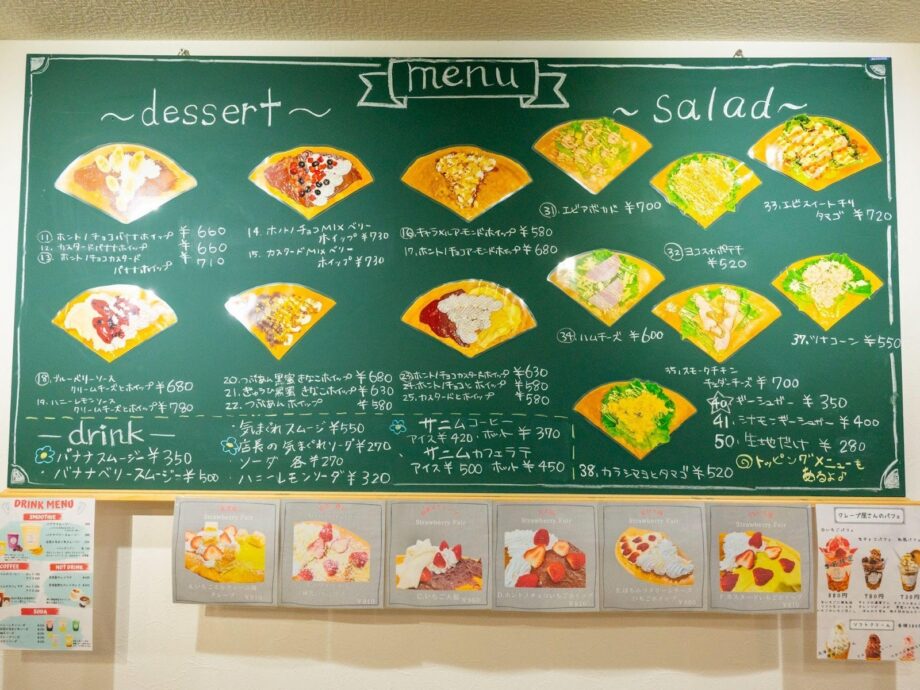 menu
~dessert~
⑪ ホントノチョコバナナホイップ ¥660
12. カスタードバナナホイップ ¥660
⑬ ホントノチョコカスタード
バナナホイップ ¥710
14. ホントノチョコMIXベリー
ホイップ ¥730
15. カスタードMIXベリー
ホイップ ¥730
⑯ キャラメルアーモンドホイップ ¥580
17. ホントノチョコアーモンドホイップ ¥680
⑱ ブルーベリーソース
クリームチーズとホイップ ¥680
19. ハニーレモンソース
クリームチーズとホイップ ¥780
20. つぶあん黒蜜きなこホイップ ¥680
21. ぎゅうひ黒蜜きなこホイップ ¥630
22. つぶあんホイップ ¥580
23. ホントノチョコカスタードホイップ ¥630
24. ホントノチョコとホイップ ¥580
25. カスタードとホイップ ¥580
~salad~
㉛ エビアボカド ¥700
㉜ ヨコスカポテチ
¥520
33. エビスイートチリ
タマゴ ¥720
㉞ ハムチーズ ¥600
35. スモークチキン
チェダーチーズ ¥700
37. ツナコーン ¥550
38. カラシマヨとタマゴ ¥520
40 ギーシュガー ¥350
41. シナモンギーシュガー ¥400
50. 生地だけ ¥280
◎トッピングメニューも
あるよ♪
—drink—
バナナスムージー ¥350
バナナベリースムージー ¥500
・気まぐれスムージ ¥550
・店長の気まぐれソーダ ¥270
ソーダ 各¥270
ハニーレモンソーダ ¥320
サニムコーヒー
アイス¥420・ホット ¥370
サニムカフェラテ
アイス¥500 ホット¥450
DRINK MENU
SMOOTHIE
COFFEE
HOT DRINK
SODA
Strawberry Fair
Strawberry Fair
Strawberry Fair
C.いちご大福
Strawberry Fair
D.ホントノチョコいちごホイップ
Strawberry Fair
いちごホイップ
Strawberry Fair
F.カスタードいちごホイップ
クレープ屋さんのパフェ
880円
780円
ソフトクリーム